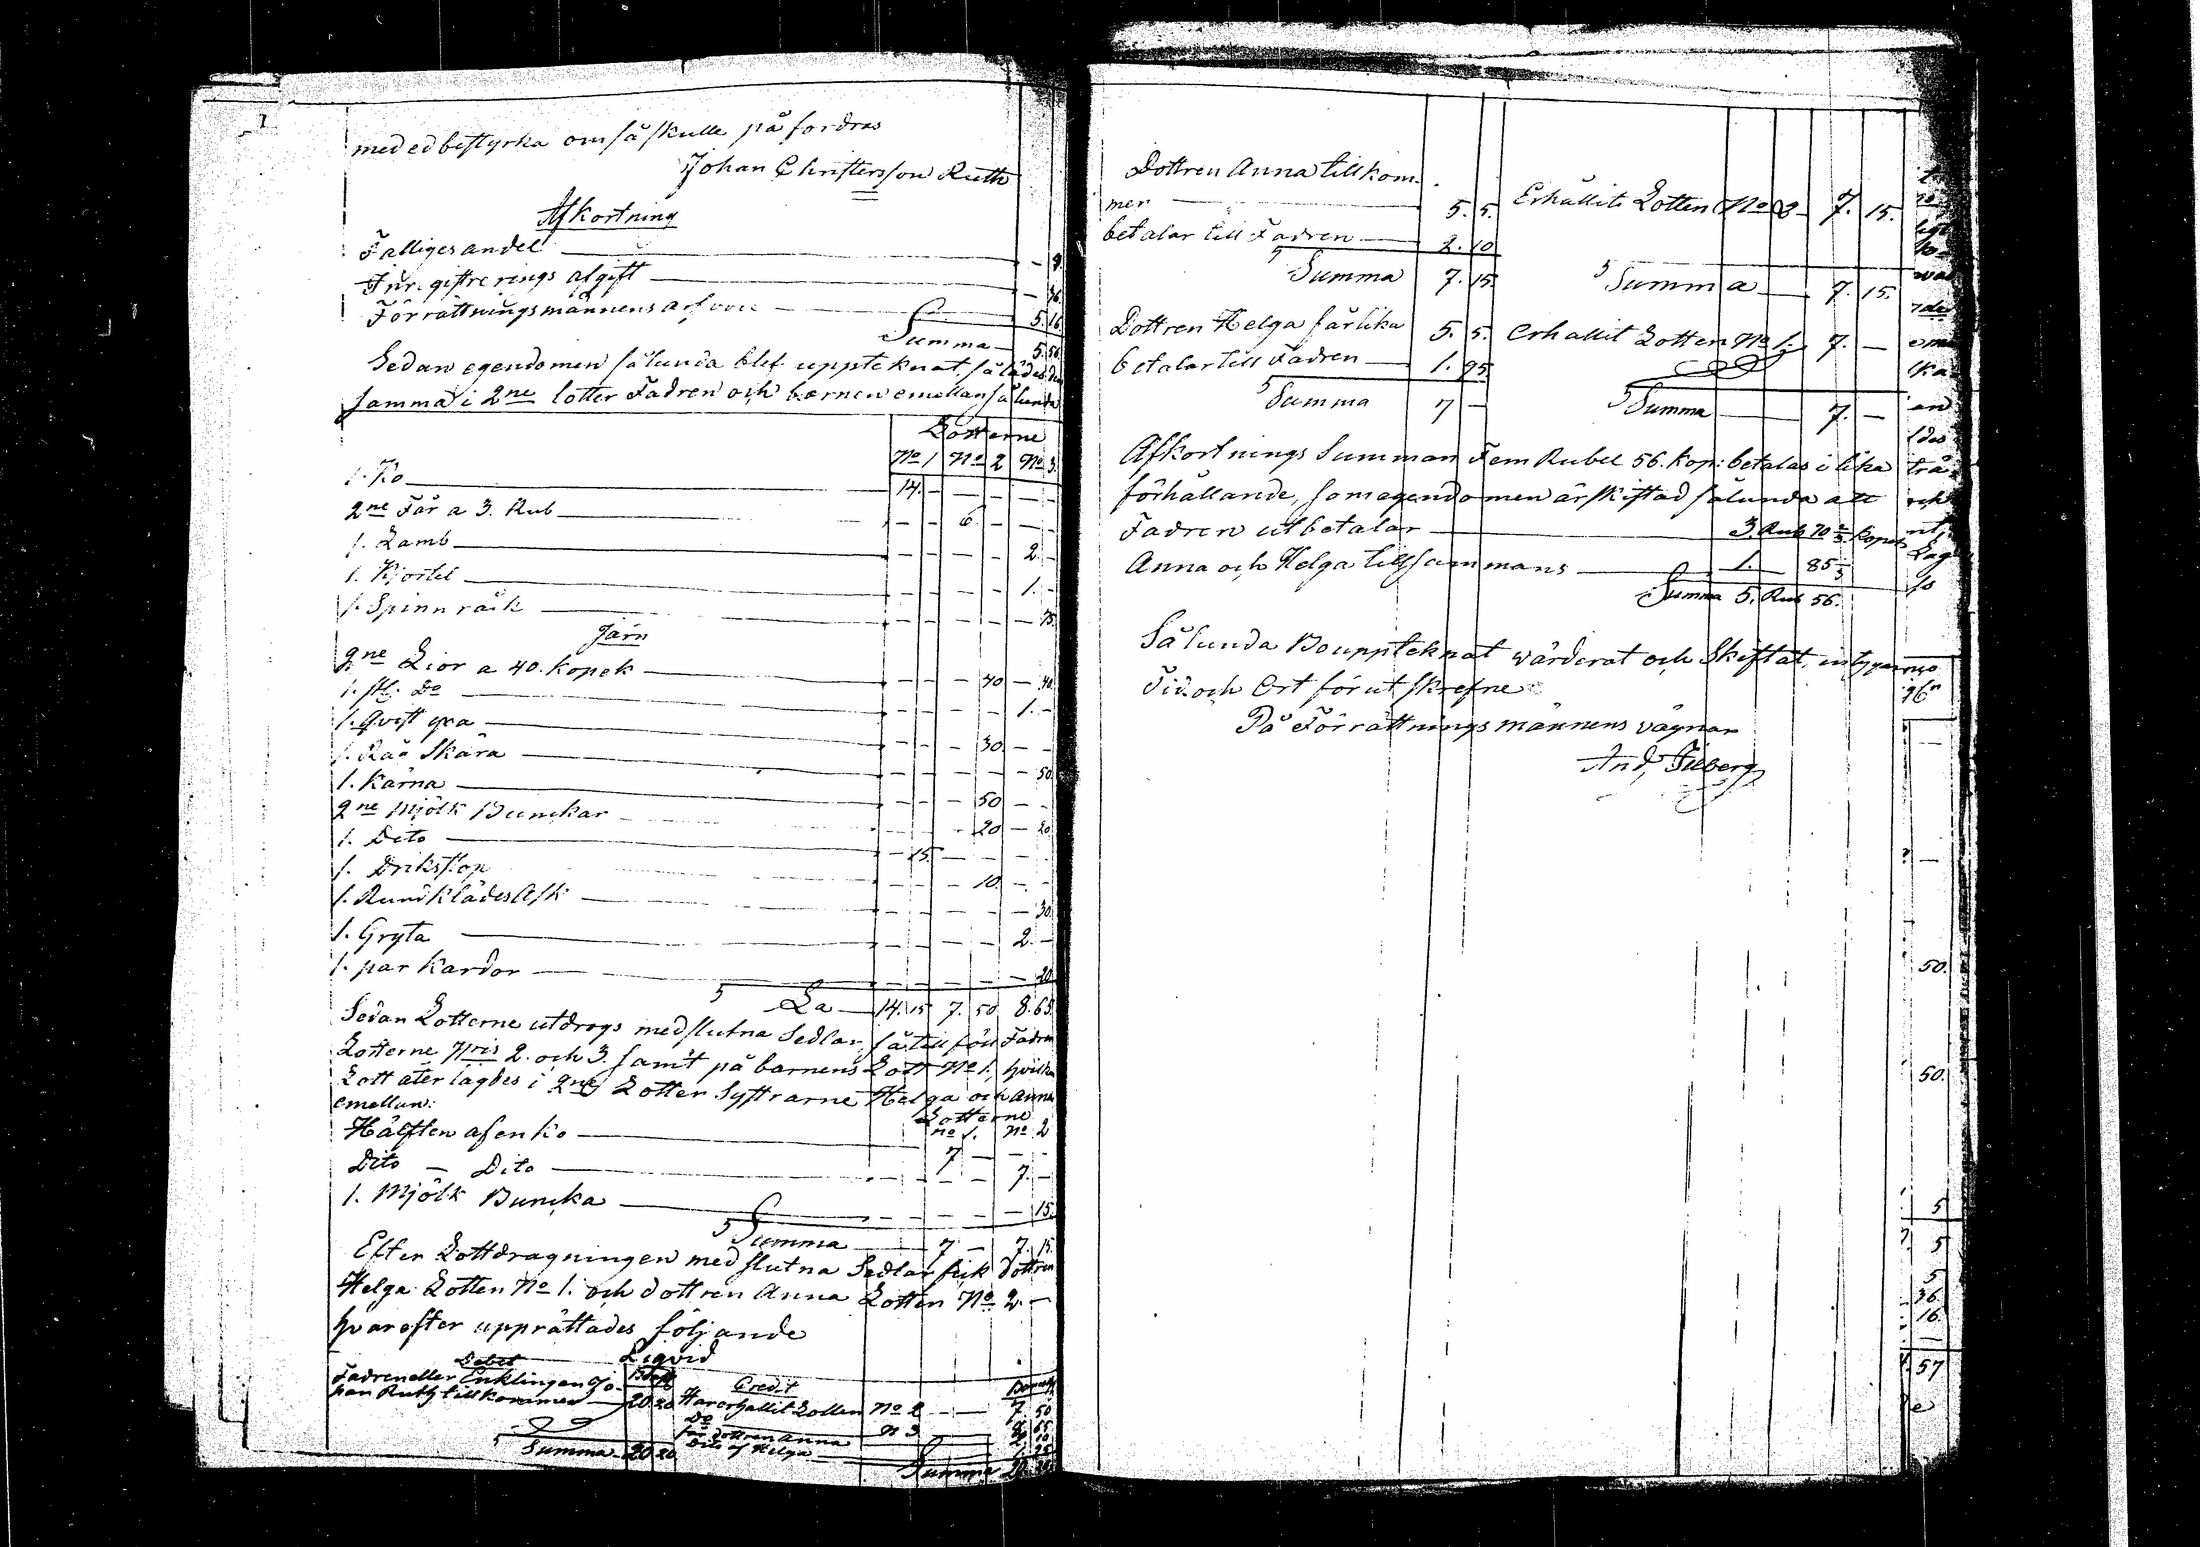 med ed bestyrka om så skulle på fordras
Johan Christersson Ruth
Afkortning
Fattiges andel — 4
Inregistrerings afgift — 36
Förrättningsmännens arfvode 5. 16
Summa 5. 56
Sedan egendomen sålunda blef uppteknat, så lades den
samma i 2ne lotter Fadren och barnen emellan sålunda
Lotterne
No 1 No 2 No 3
1. Ko 14. —
2ne Får a 3. Rub 6. —
1. Lamb 2. —
1. Kjortel 1. —
1. Spinnråck — 75
Järn
2ne Lior a 40. Kopek 40 — 40
1. st. Do 1. —
1. Qvist yxa 30
1. Råg Skära 50
1. Kärna 50
2ne Mjölk Bunckar 20 — 20
1. Dito 15
1. Drikstop 10
1. Rund klädes Ask 30
1. Gryta 2. —
1. par Kardor 20
La 14. 15 7. 50 8. 65
Sedan Lotterne utdrogs med slutna Sedlar, så till föll Fadren
Lotterne Nris 2. och 3. samt på barnens Lott No 1. hvilken
Lott åter lagdes i 2ne Lotter Systrarne Helga och Anna
emellan:
Lotterne
No 1. No 2
Hälften af en Ko 7 —
Dito — Dito 7. —
1. Mjölk Buncka 15.
Summa 7 — 7. 15
Efter Lottdragningen med slutna Sedlar fick Dottren
Helga Lotten No 1. och dottren Anna Lotten No 2. —
hvarefter upprättades följande
Liqvid
Debet
Fadren eller Enklingen Jo-
han Ruth tillkommer 20 20
Summa 20 20
Credit
Har erhållit Lotten No 2 7 50
Do N 3 8 65
från Dottren Anna 2 10
Dito af Helga 1. 95
Summa 20 20
Dottren Anna tillkom-
mer 5. 5. Erhållit Lotten No 2 7. 15.
betalar till Fadren 2. 10
Summa 7. 15 Summa 7. 15.
Dottren Helga får lika 5. 5. Erhållit Lotten No 1. 7. —
betalar till Fadren 1. 95
Summa 7 — Summa 7. —
Afkortnings Summan Fem Rubel 56. Kop: betalas i lika
förhållande, som egendomen är skiftad sålunda att
Fadren utbetalar 3. Rub 70 2/3 Kopek
Anna och Helga tillsammans 1. 85 1/3
Summa 5. Rub 56.
Sålunda Boupptecknat värderat och Skiftat, intygar
Tid och Ort förut skrefne
På Förrättningsmännens vägnar
And,
50.
50.
5
5
5
36.
16.
57